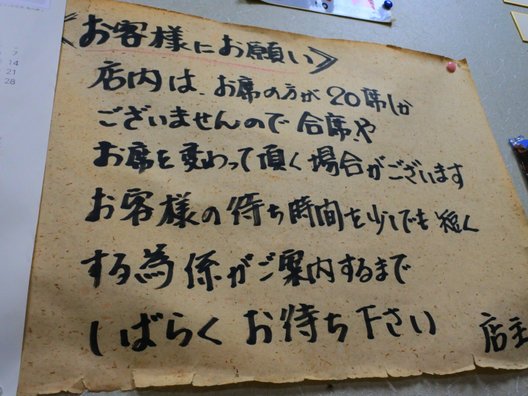 《お客様にお願い》
店内は、お席の方が20席しか
ございませんので合席や
お席を変わって頂く場合がございます
お客様の待ち時間を少しでも短く
する為係がご案内するまで
しばらくお待ち下さい
店主
7
14
21
28